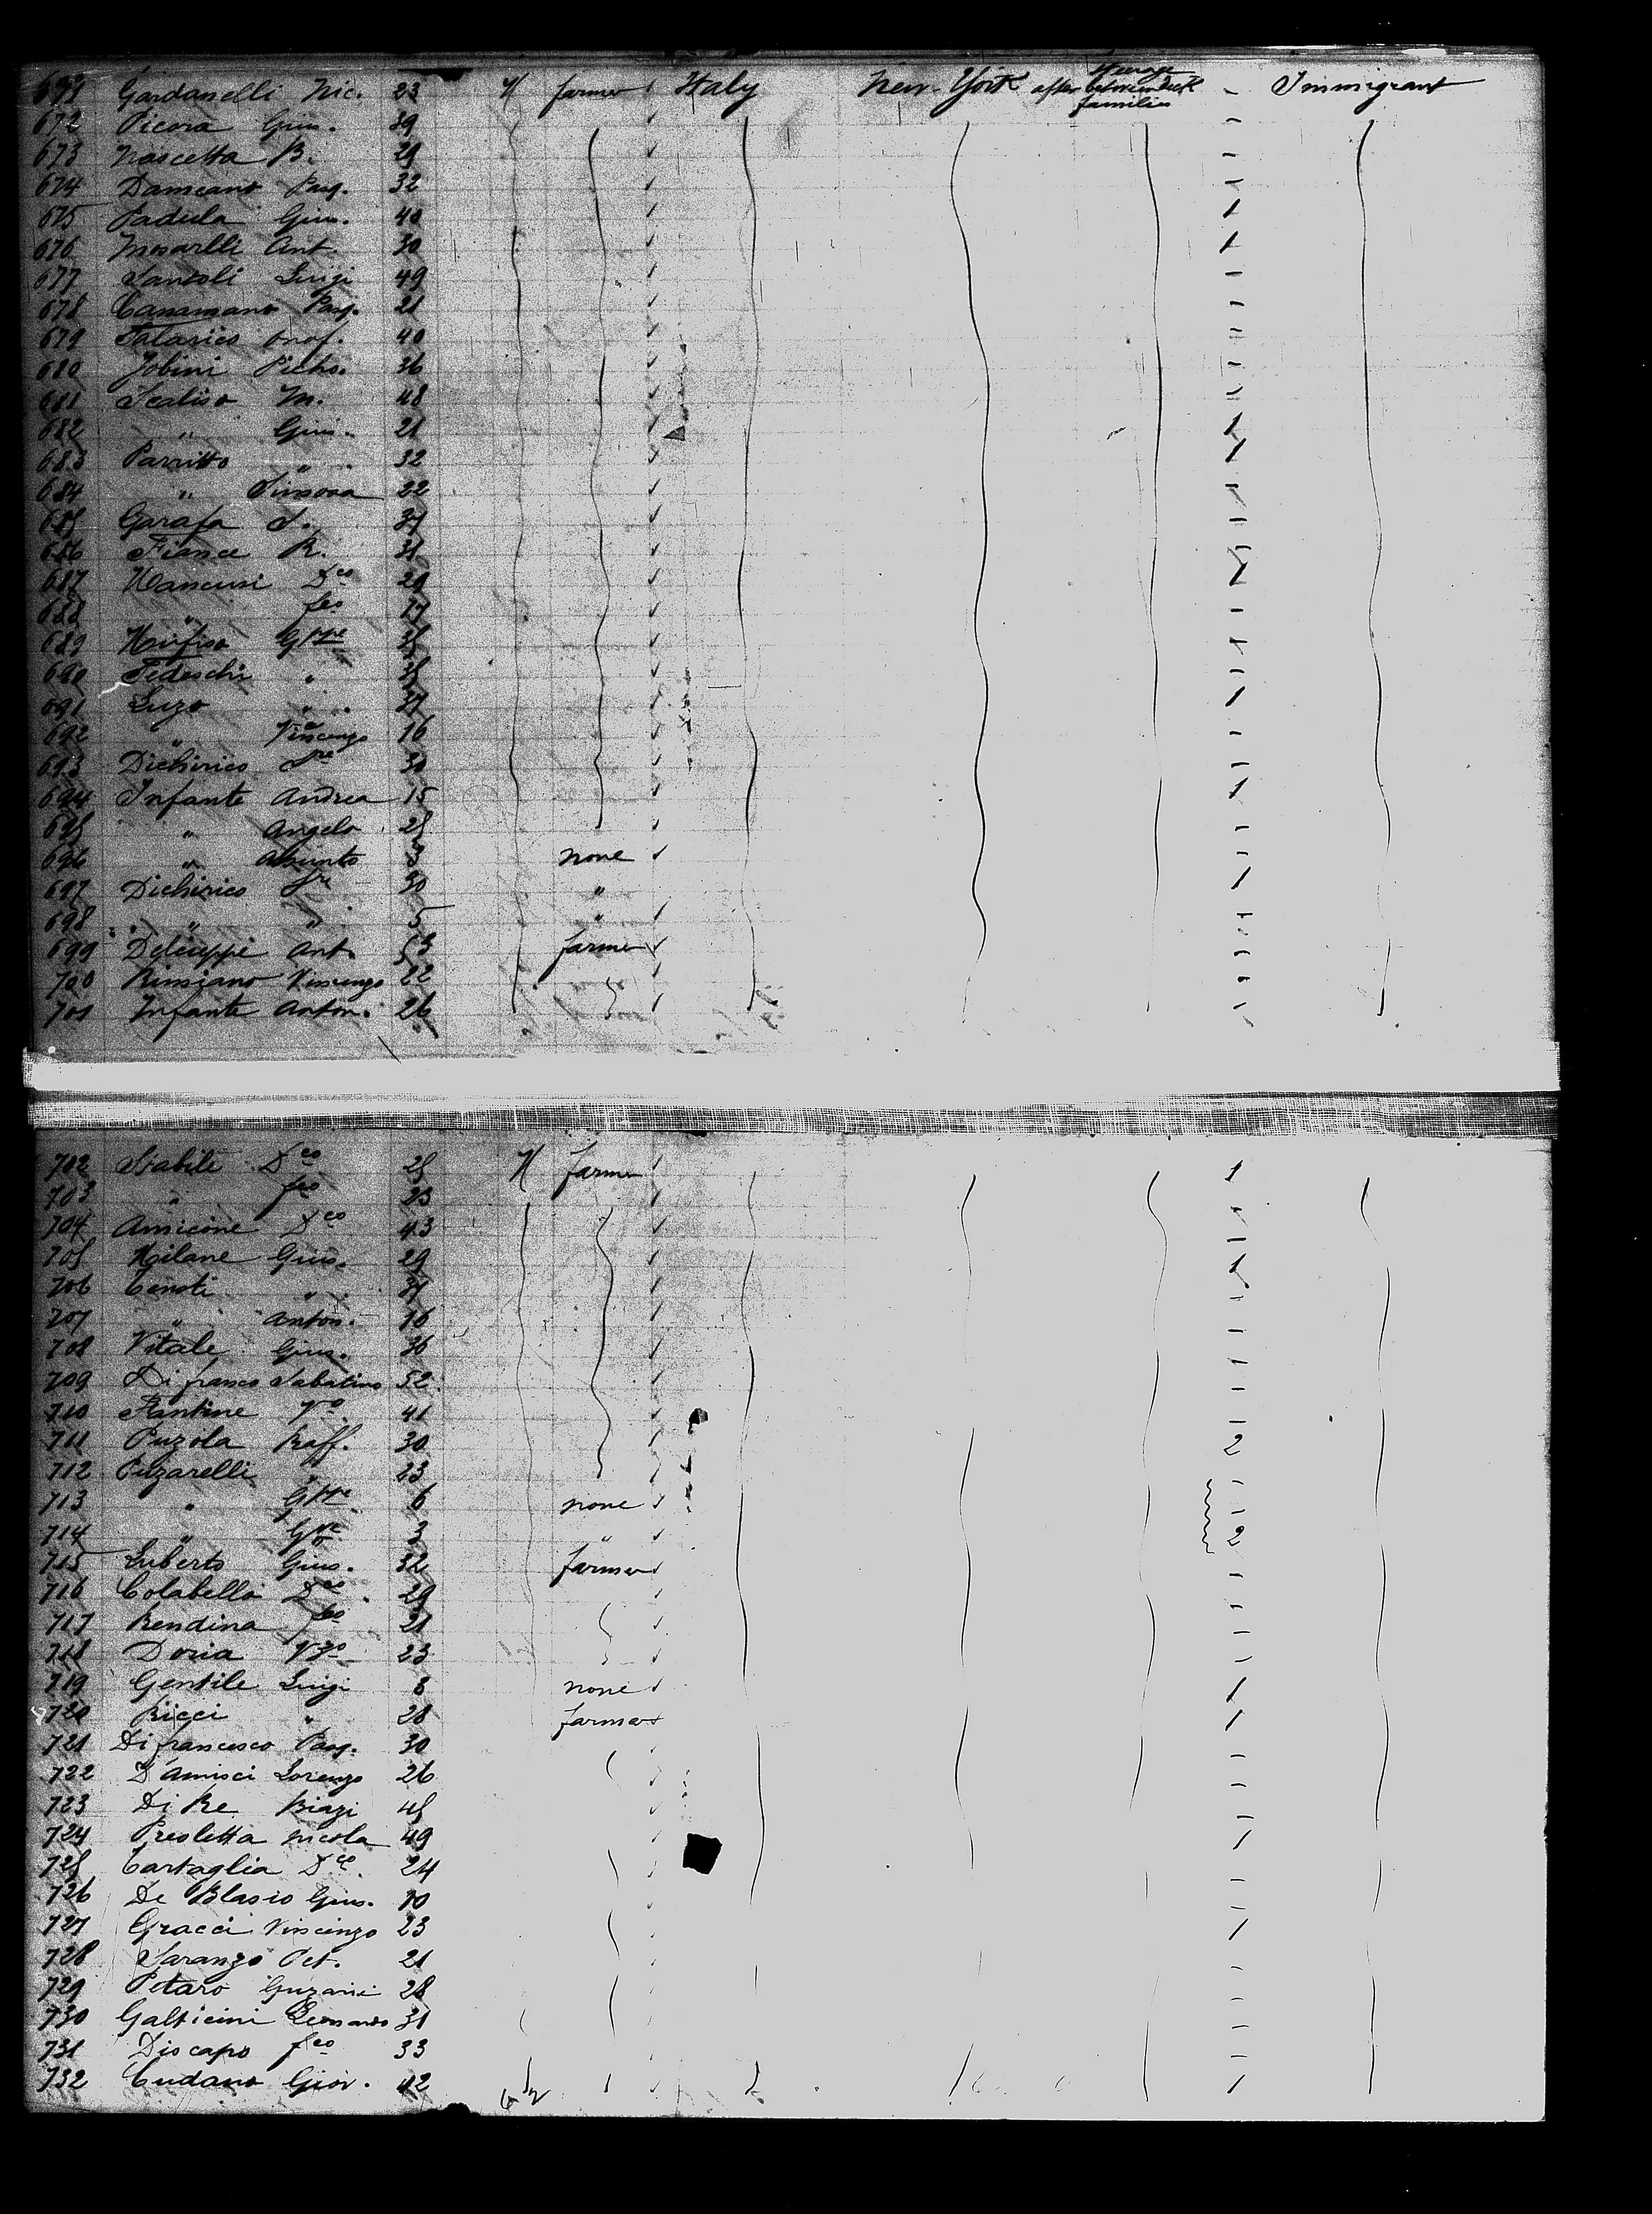 671 Gardanelli Nic. 23 M farmer Italy New-York after steerage betweendeck families - Immigrant
672 Picora Gius. 39
673 Nascetta B. 29
674 Damiano Pasq. 32
675 Padula Gius. 40
676 Ant. 30
677 Santoli Luigi 49
678 Casamano Pasq. 21
679 Satarico Onof. 40
680 Jobini 36
681 Scaliso M. 48
682 " Gius. 21
683 Parritto " 32
684 " 22
685 Garafa S.
686 Fiance R. 31
687 Mancusi Dco
688 " fco
689 Gppe
690 Tedeschi "
691 Luzo "
692 " Vincenzo 16
693 Dichirico 30
694 Infante Andrea 15
695 " Angelo 25
696 " Assunto 3 none
697 Dichirico 30 "
698 " " 5 "
699 Deliseppi Ant. 53 farmer
700 Vincenzo 22
701 Infante Anton. 26
702 Stabile Dco 25 M farmer
703 " fco 23
704 Amicone Dco 43
705 Milane Gius. 29
706 Cenoti "
707 " Anton. 16
708 Vitale Gius. 36
709 Di franco Sabatino 52
710 Fantine Vo 41
711 Puzola Raff. 30 2
712 Puzarelli " 23
713 " Gppe 6 none
714 " 3 " 2
715 Luberto Gius. 32 farmer
716 Colabella Dco 29
717 Rendina fco 21
718 Doria Vzo 23
719 Gentile Luigi 8 none
720 Ricci " 28 farmer
721 Di francesco Pasq. 30
722 D'Amisci Lorenzo 26
723 Di Re Biagi 45
724 Preoletta Nicola 49
725 Cartaglia Dco 24
726 De Blasio Gius.
727 Gracci Vincenzo 23
728 Saranzo Pet. 21
729 Petaro 28
730 Galticini Leonardo 31
731 Discapo fco 33
732 Cudano Giov. 42